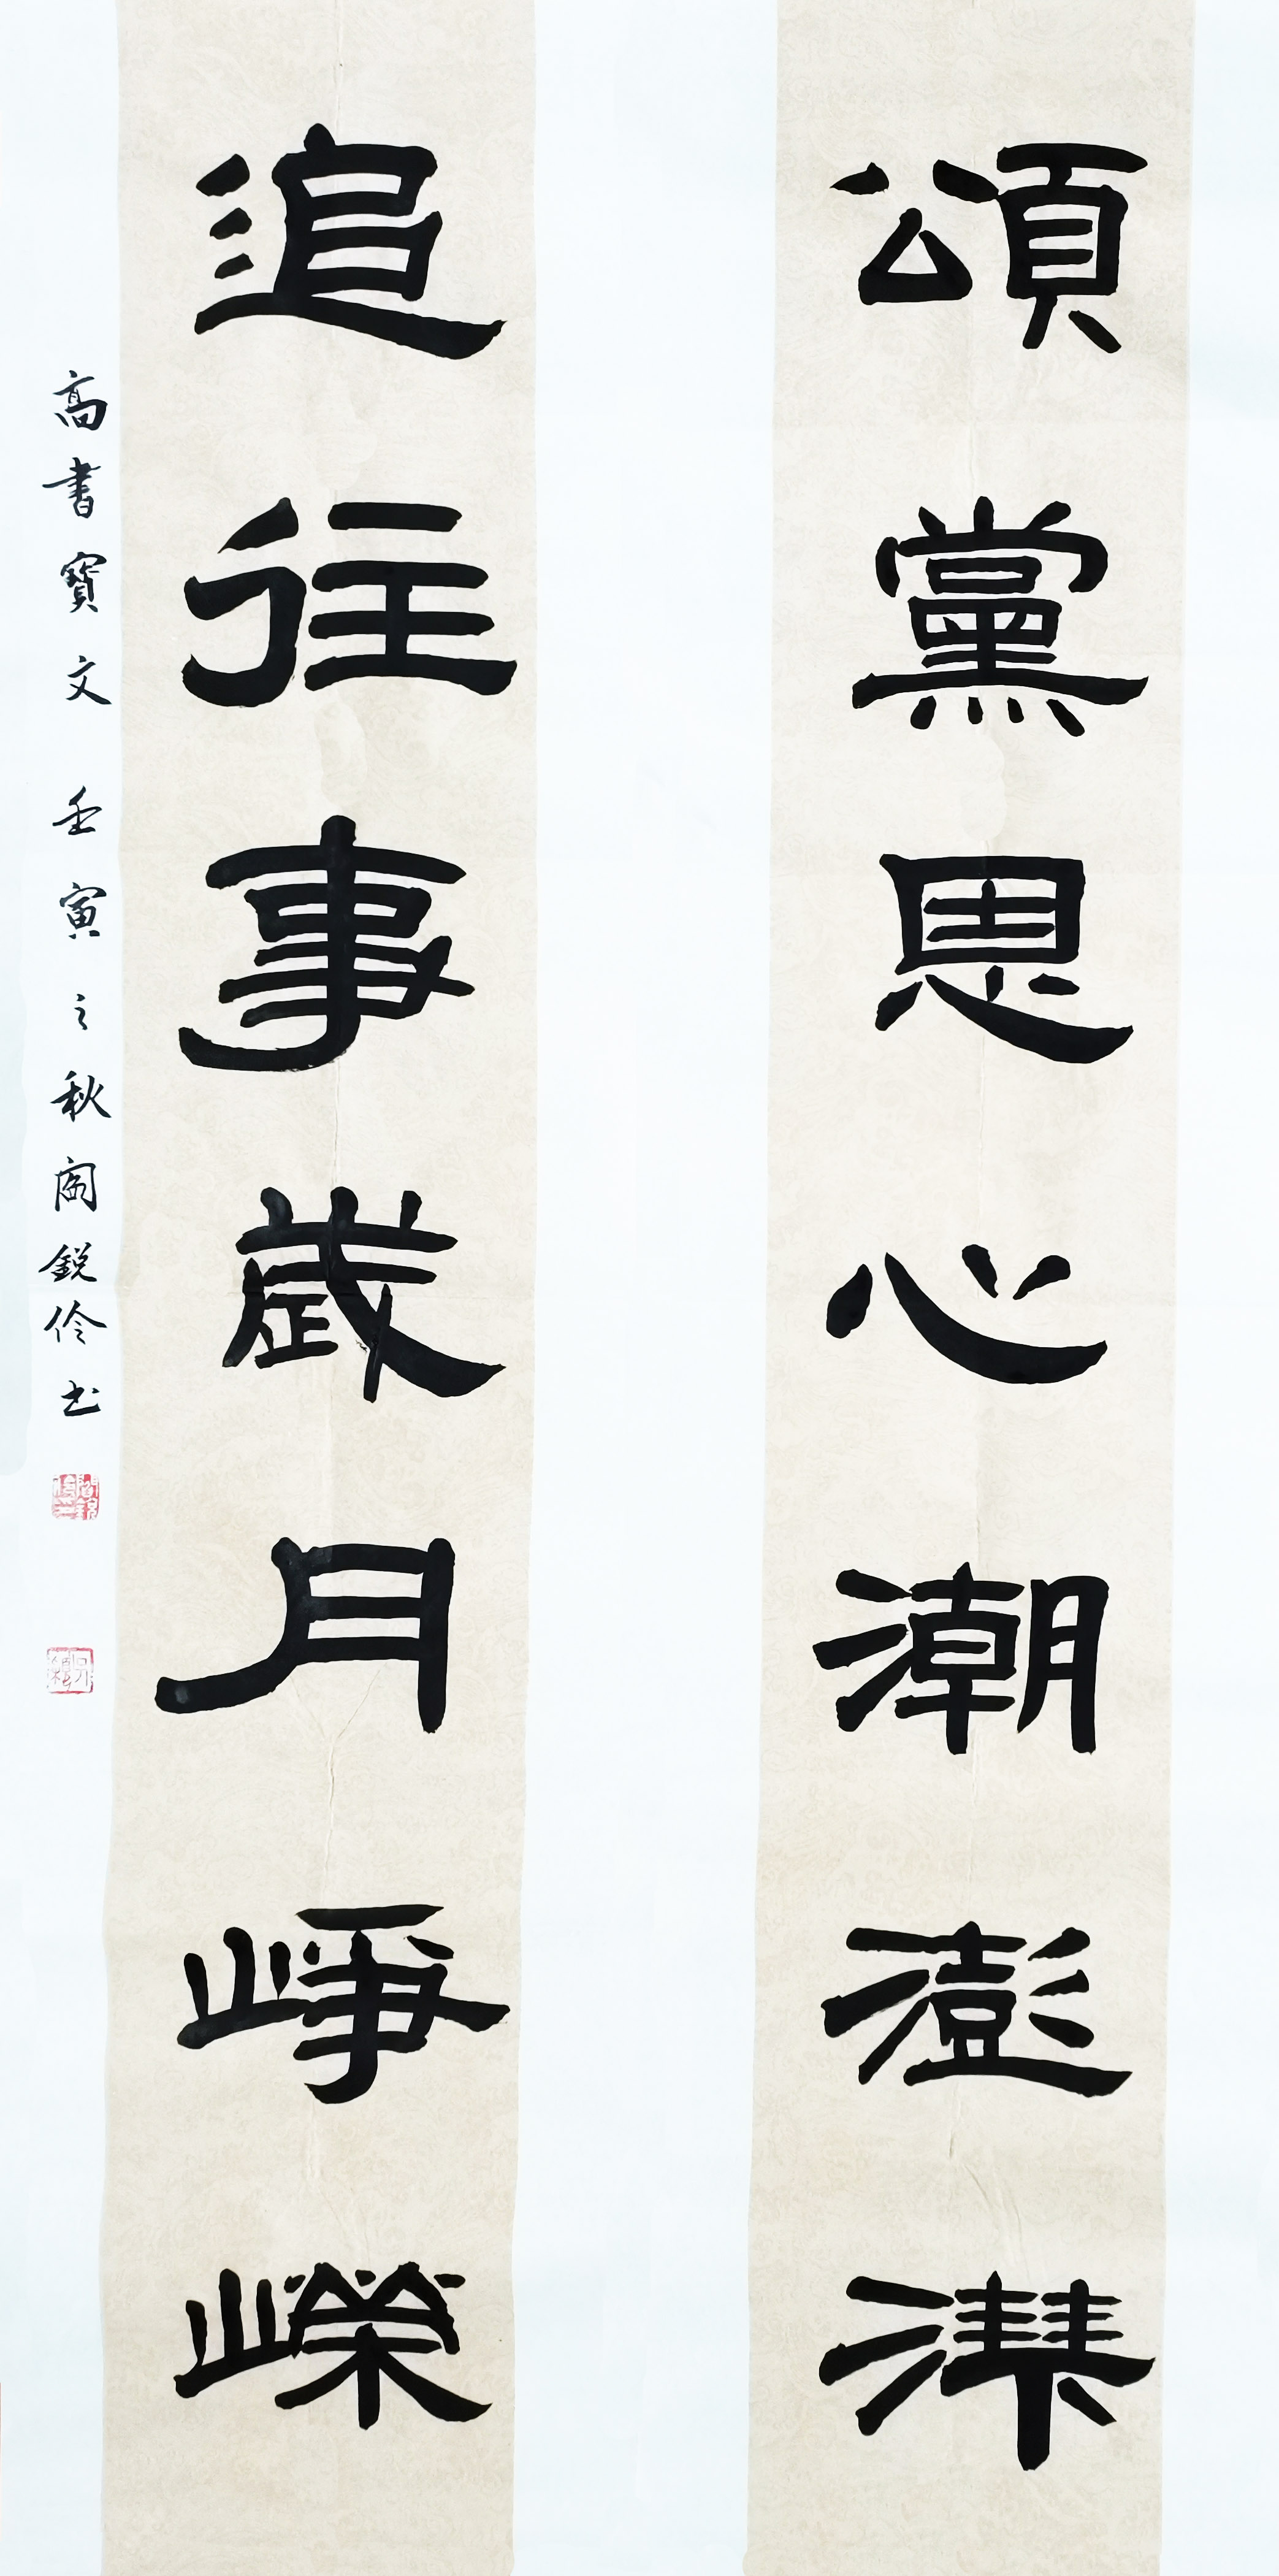 頌黨恩心潮澎湃
追往事歲月崢嶸
高書寶文 壬寅之秋閻銳伶书